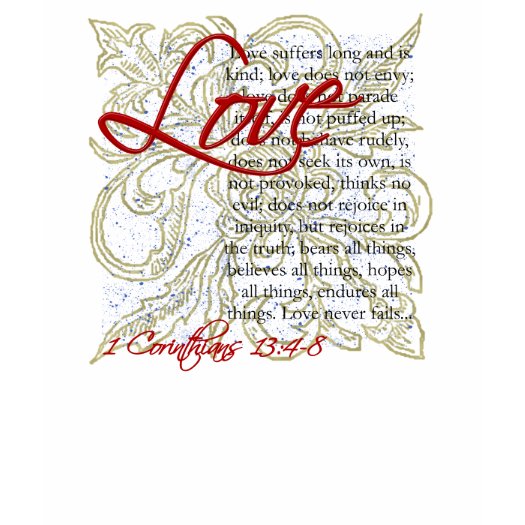 Love
Love suffers long and is
kind; love does not envy;
love does not parade
itself, is not puffed up;
does not behave rudely,
does not seek its own, is
not provoked, thinks no
evil; does not rejoice in
iniquity, but rejoices in
the truth; bears all things,
believes all things, hopes
all things, endures all
things. Love never fails...
1 Corinthians 13:4-8